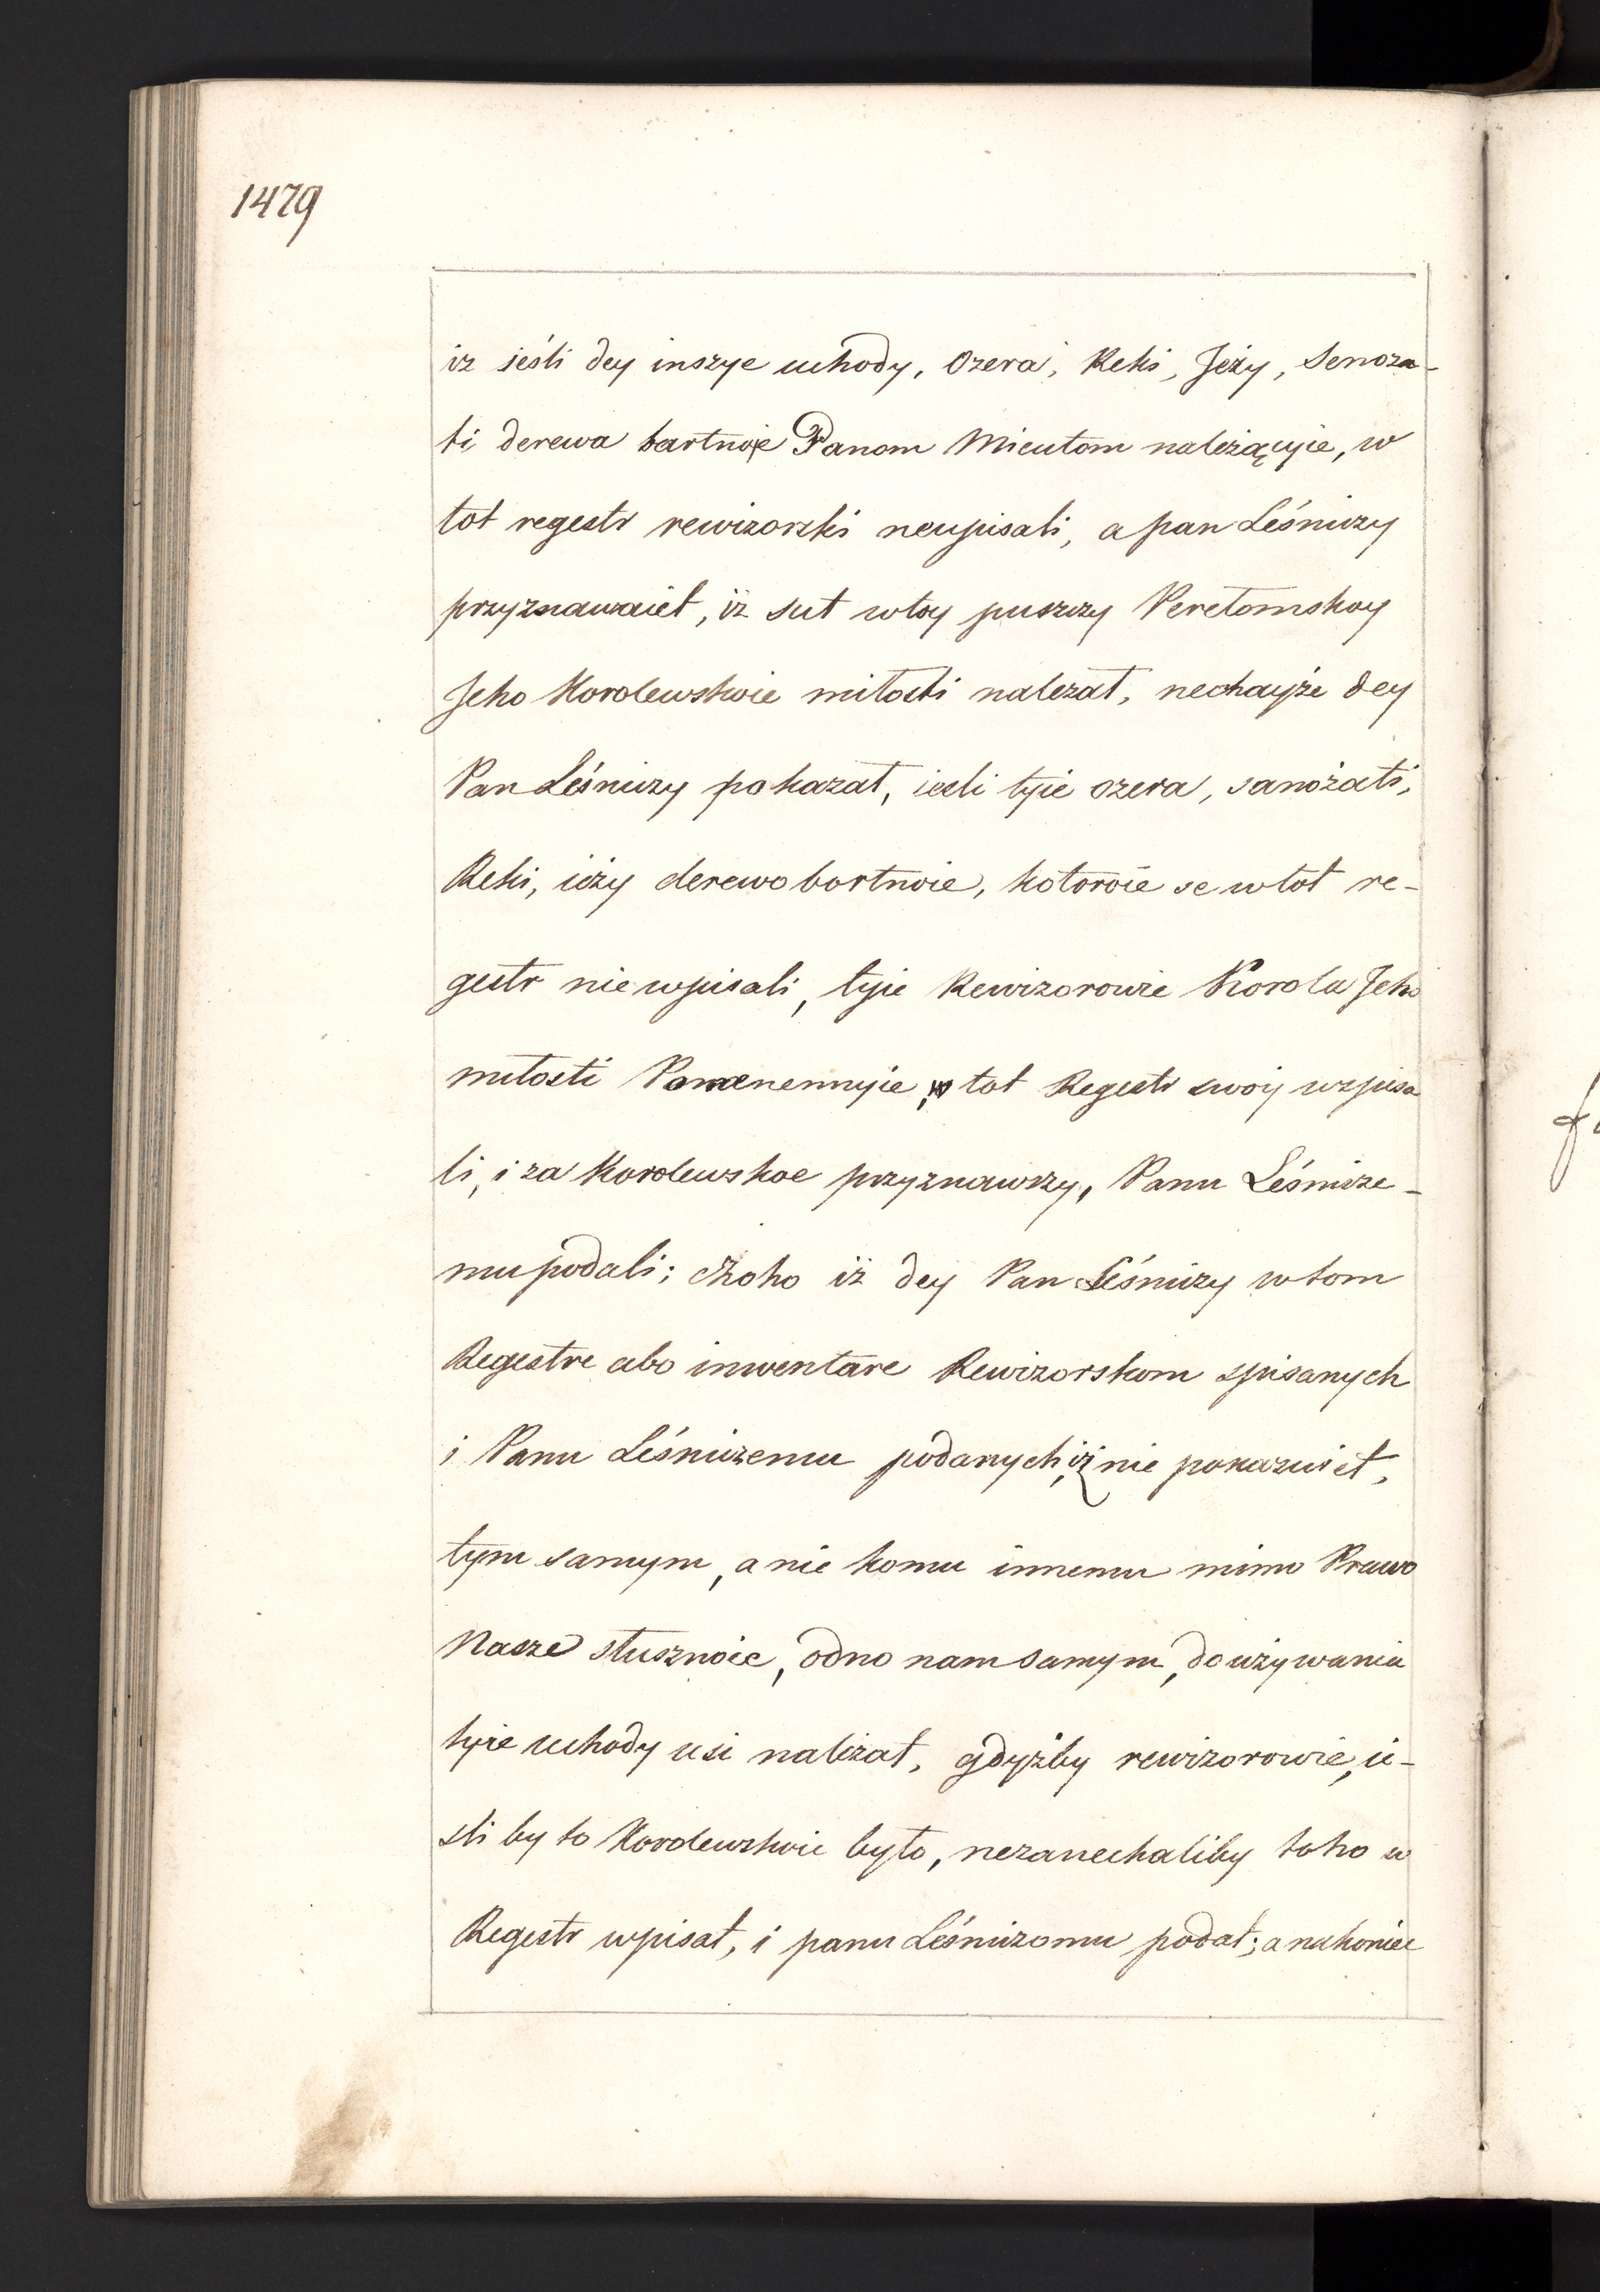 1479
iz jeśli dey inszye uchody, Ozera, Reki, Jezy, Senoza-
ti derewa bartnoje Panom Micutom należącyie, w
tot regestr rewizorski neupisali, a pan Leśniczy
przyznawaiet, iż sut wtoy puszczy Peretomskoy
Jeho Korolewskoie miłosti należat, nechayże dey
Pan Leśniczy pokazat, iesli tyie ozera, sanożati,
Reki, ieży derewo bortnoie, kotoroie se w tot re-
gestr nie wpisali, tyie Rewizorowie Korola Jeho
miłosti Pomenennyie, w tot Regestr swoiy wzpisa
li, i za Korolewskoe przyznawszy, Panu Leśnicze-
mu podali; czoho iż dey Pan Leśniczy w tom
Regestre abo inwentare Rewizorskom spisanych
i Panu Leśniczemu podanych, iż nie pokazuiet,
tym samym, a nie komu innemu mimo Prawo
Nasze słusznoie, odno nam samym, do używania
tyie uchody usi należat, gdyżby rewizorowie, ie-
sli by to Korolewskoie było, nezanechaliby toho w
Regestr wpisat, i panu Leśniczomu podat; a nakoniec